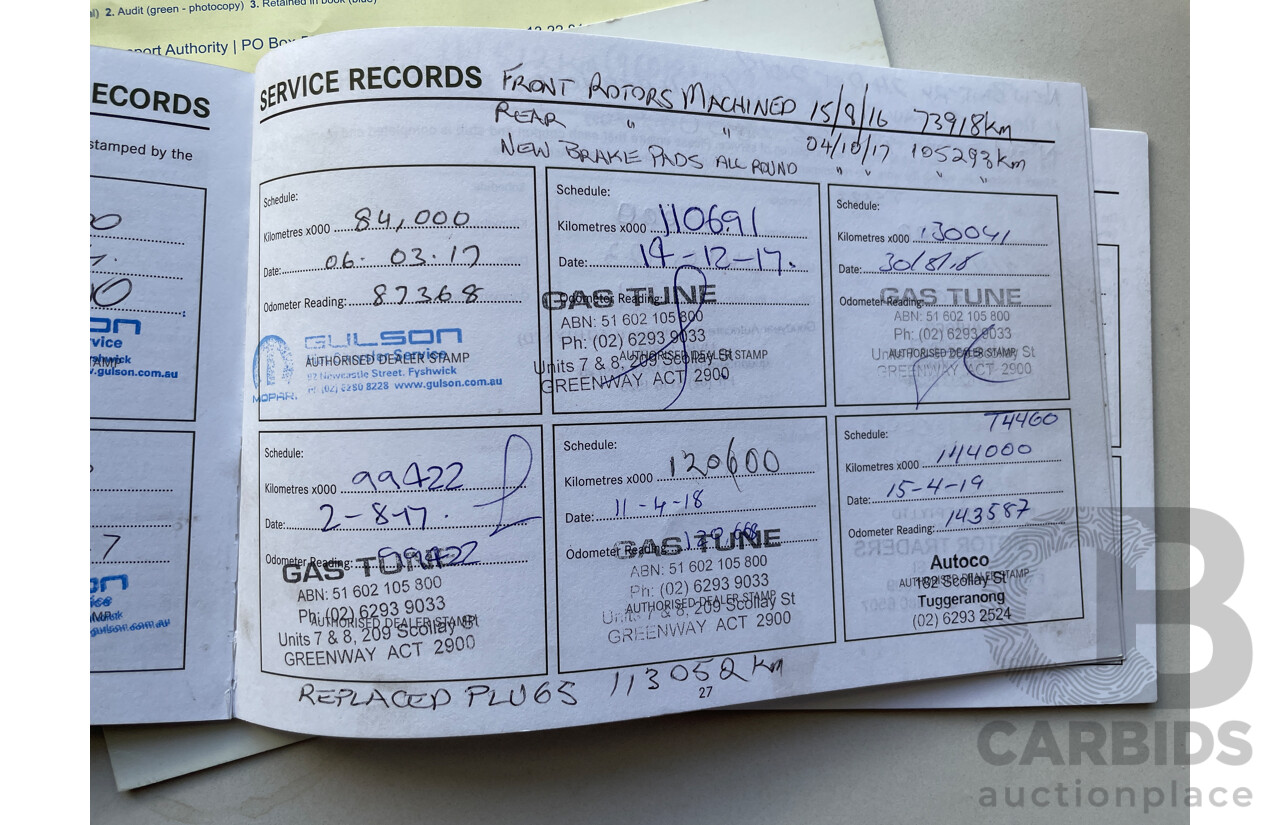 2. Audit (green - photocopy) 3. Retained in book (blue)
port Authority | PO Box
ECORDS
stamped by the
SERVICE RECORDS
FRONT ROTORS MACHINED 15/8/16 73918km
REAR " " 04/10/17 105293km
NEW BRAKE PADS ALL ROUND " " " "
Schedule:
Kilometres x000 84,000
Date: 06. 03.17
Odometer Reading: 87368
GULSON
AUTHORISED DEALER STAMP
Newcastle Street. Fyshwick
(02) 6280 8228 www.gulson.com.au
MOPAR.
Schedule:
Kilometres x000 110691
Date: 14-12-17.
Odometer Reading:
GAS TUNE
ABN: 51 602 105 800
Ph: (02) 6293 9033
AUTHORISED DEALER STAMP
Units 7 & 8, 209 Scollay St
GREENWAY ACT 2900
Schedule:
Kilometres x000 130041
Date: 30/8/18
Odometer Reading:
GAS TUNE
ABN: 51 602 105 800
Ph: (02) 6293 9033
AUTHORISED DEALER STAMP
GREENWAY ACT 2900
Schedule:
Kilometres x000 99422
Date: 2-8-17.
Odometer Reading: 99422
GAS TUNE
ABN: 51 602 105 800
Ph: (02) 6293 9033
AUTHORISED DEALER STAMP
Units 7 & 8, 209 Scollay St
GREENWAY ACT 2900
Schedule:
Kilometres x000 120600
Date: 11-4-18
Odometer Reading:
GAS TUNE
ABN: 51 602 105 800
Ph: (02) 6293 9033
AUTHORISED DEALER STAMP
Units 7 & 8, 209 Scollay St
GREENWAY ACT 2900
Schedule: T4460
Kilometres x000 144000
Date: 15-4-19
Odometer Reading: 143587
Autoco
AUTHORISED DEALER STAMP
182 Scollay St
Tuggeranong
(02) 6293 2524
REPLACED PLUGS 113052 km
27
CARBIDS
auctionplace